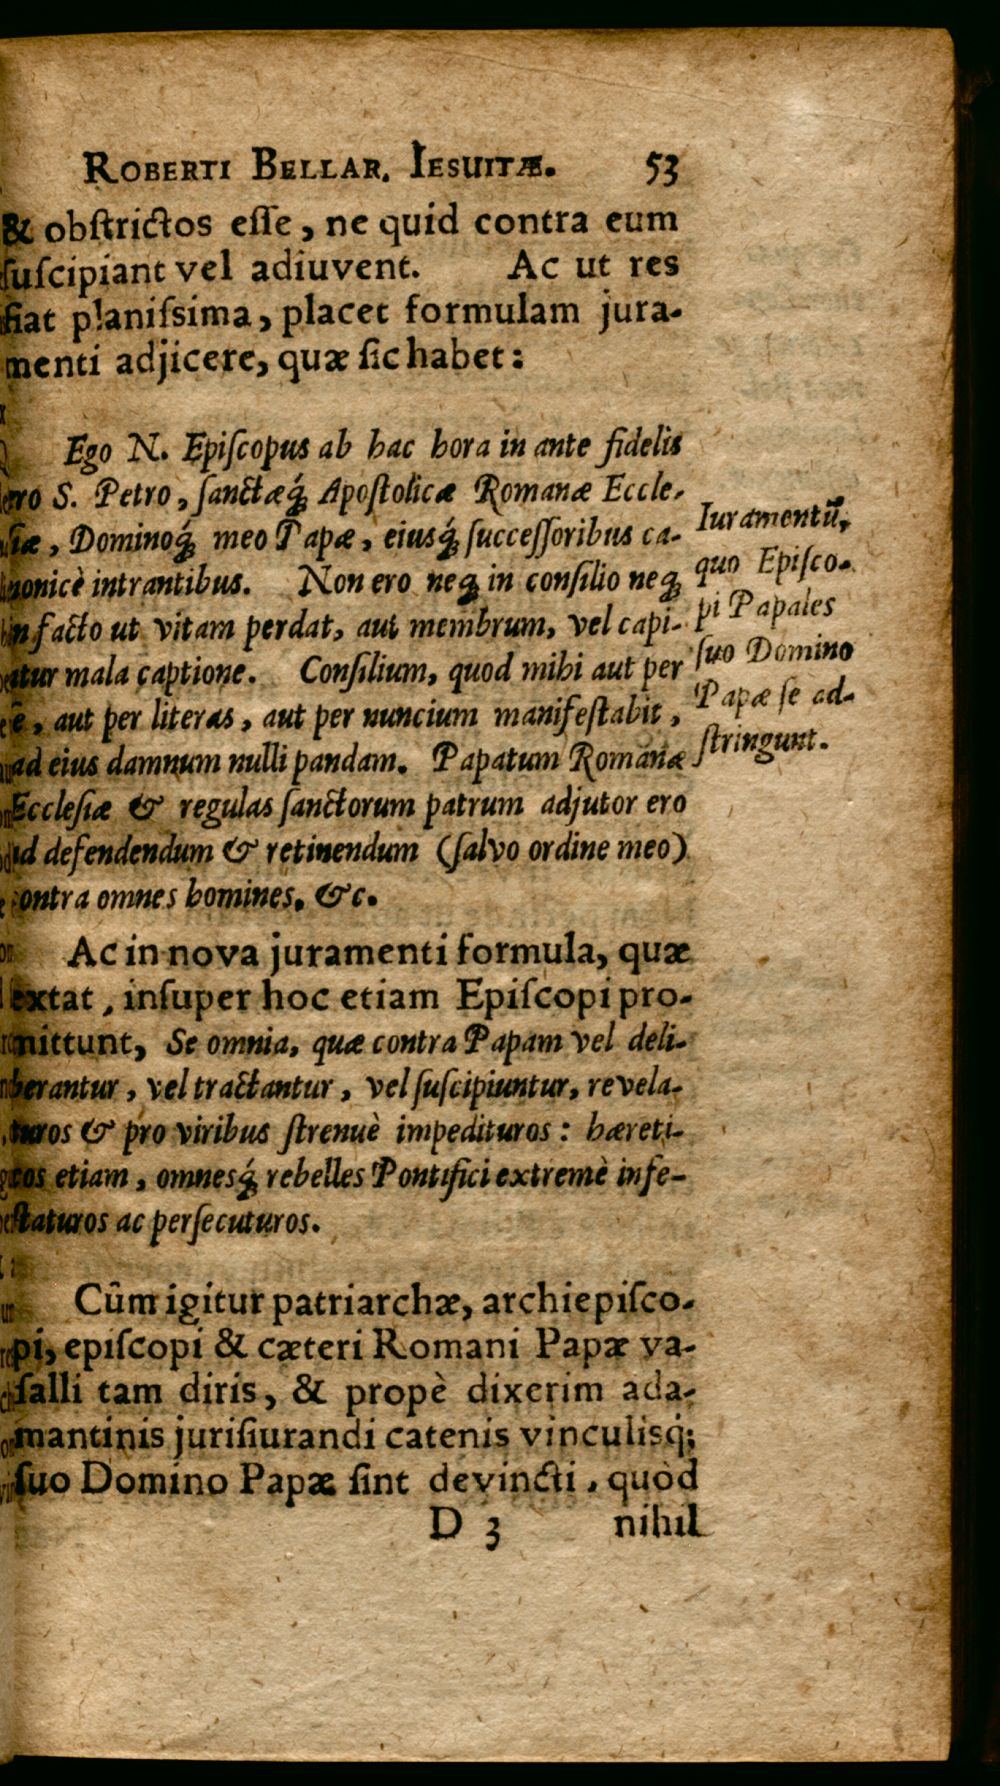 ROBERTI BELLAR. IESUITÆ. 53
& obſtrictos eſſe, ne quid contra eum
ſuſcipiant vel adiuvent. Ac ut res
fiat planiſsima, placet formulam jura-
menti adjicere, quæ ſic habet:
Ego N. Epiſcopus ab hac hora in ante fidelis
ero S. Petro, ſanctæq́; Apoſtolicæ Romanæ Eccle-
ſiæ, Dominoq́; meo Papæ, eiusq́; ſucceſſoribus ca-
nonicè intrantibus. Non ero neq; in conſilio neq;
in facto ut vitam perdat, aut membrum, vel capi-
atur mala captione. Conſilium, quod mihi aut per
ſē, aut per literas, aut per nuncium manifeſtabit,
ad eius damnum nulli pandam. Papatum Romanæ
Eccleſiæ & regulas ſanctorum patrum adjutor ero
ad defendendum & retinendum (ſalvo ordine meo)
contra omnes homines, &c.
Iuramentũ,
quo Epiſco-
pi Papales
ſuo Domino
Papæ ſe ad-
ſtringunt.
Ac in nova juramenti formula, quæ
extat, inſuper hoc etiam Epiſcopi pro-
mittunt, Se omnia, quæ contra Papam vel deli-
berantur, vel tractantur, vel ſuſcipiuntur, revela-
turos & pro viribus ſtrenuè impedituros: hæreti-
cos etiam, omnesq́; rebelles Pontifici extremè infe-
ſtaturos ac perſecuturos.
Cûm igitur patriarchæ, archiepiſco-
pi, epiſcopi & cæteri Romani Papæ va-
ſalli tam diris, & propè dixerim ada-
mantinis juriſiurandi catenis vinculisq́;
ſuo Domino Papæ ſint devincti, quòd
D 3 nihil